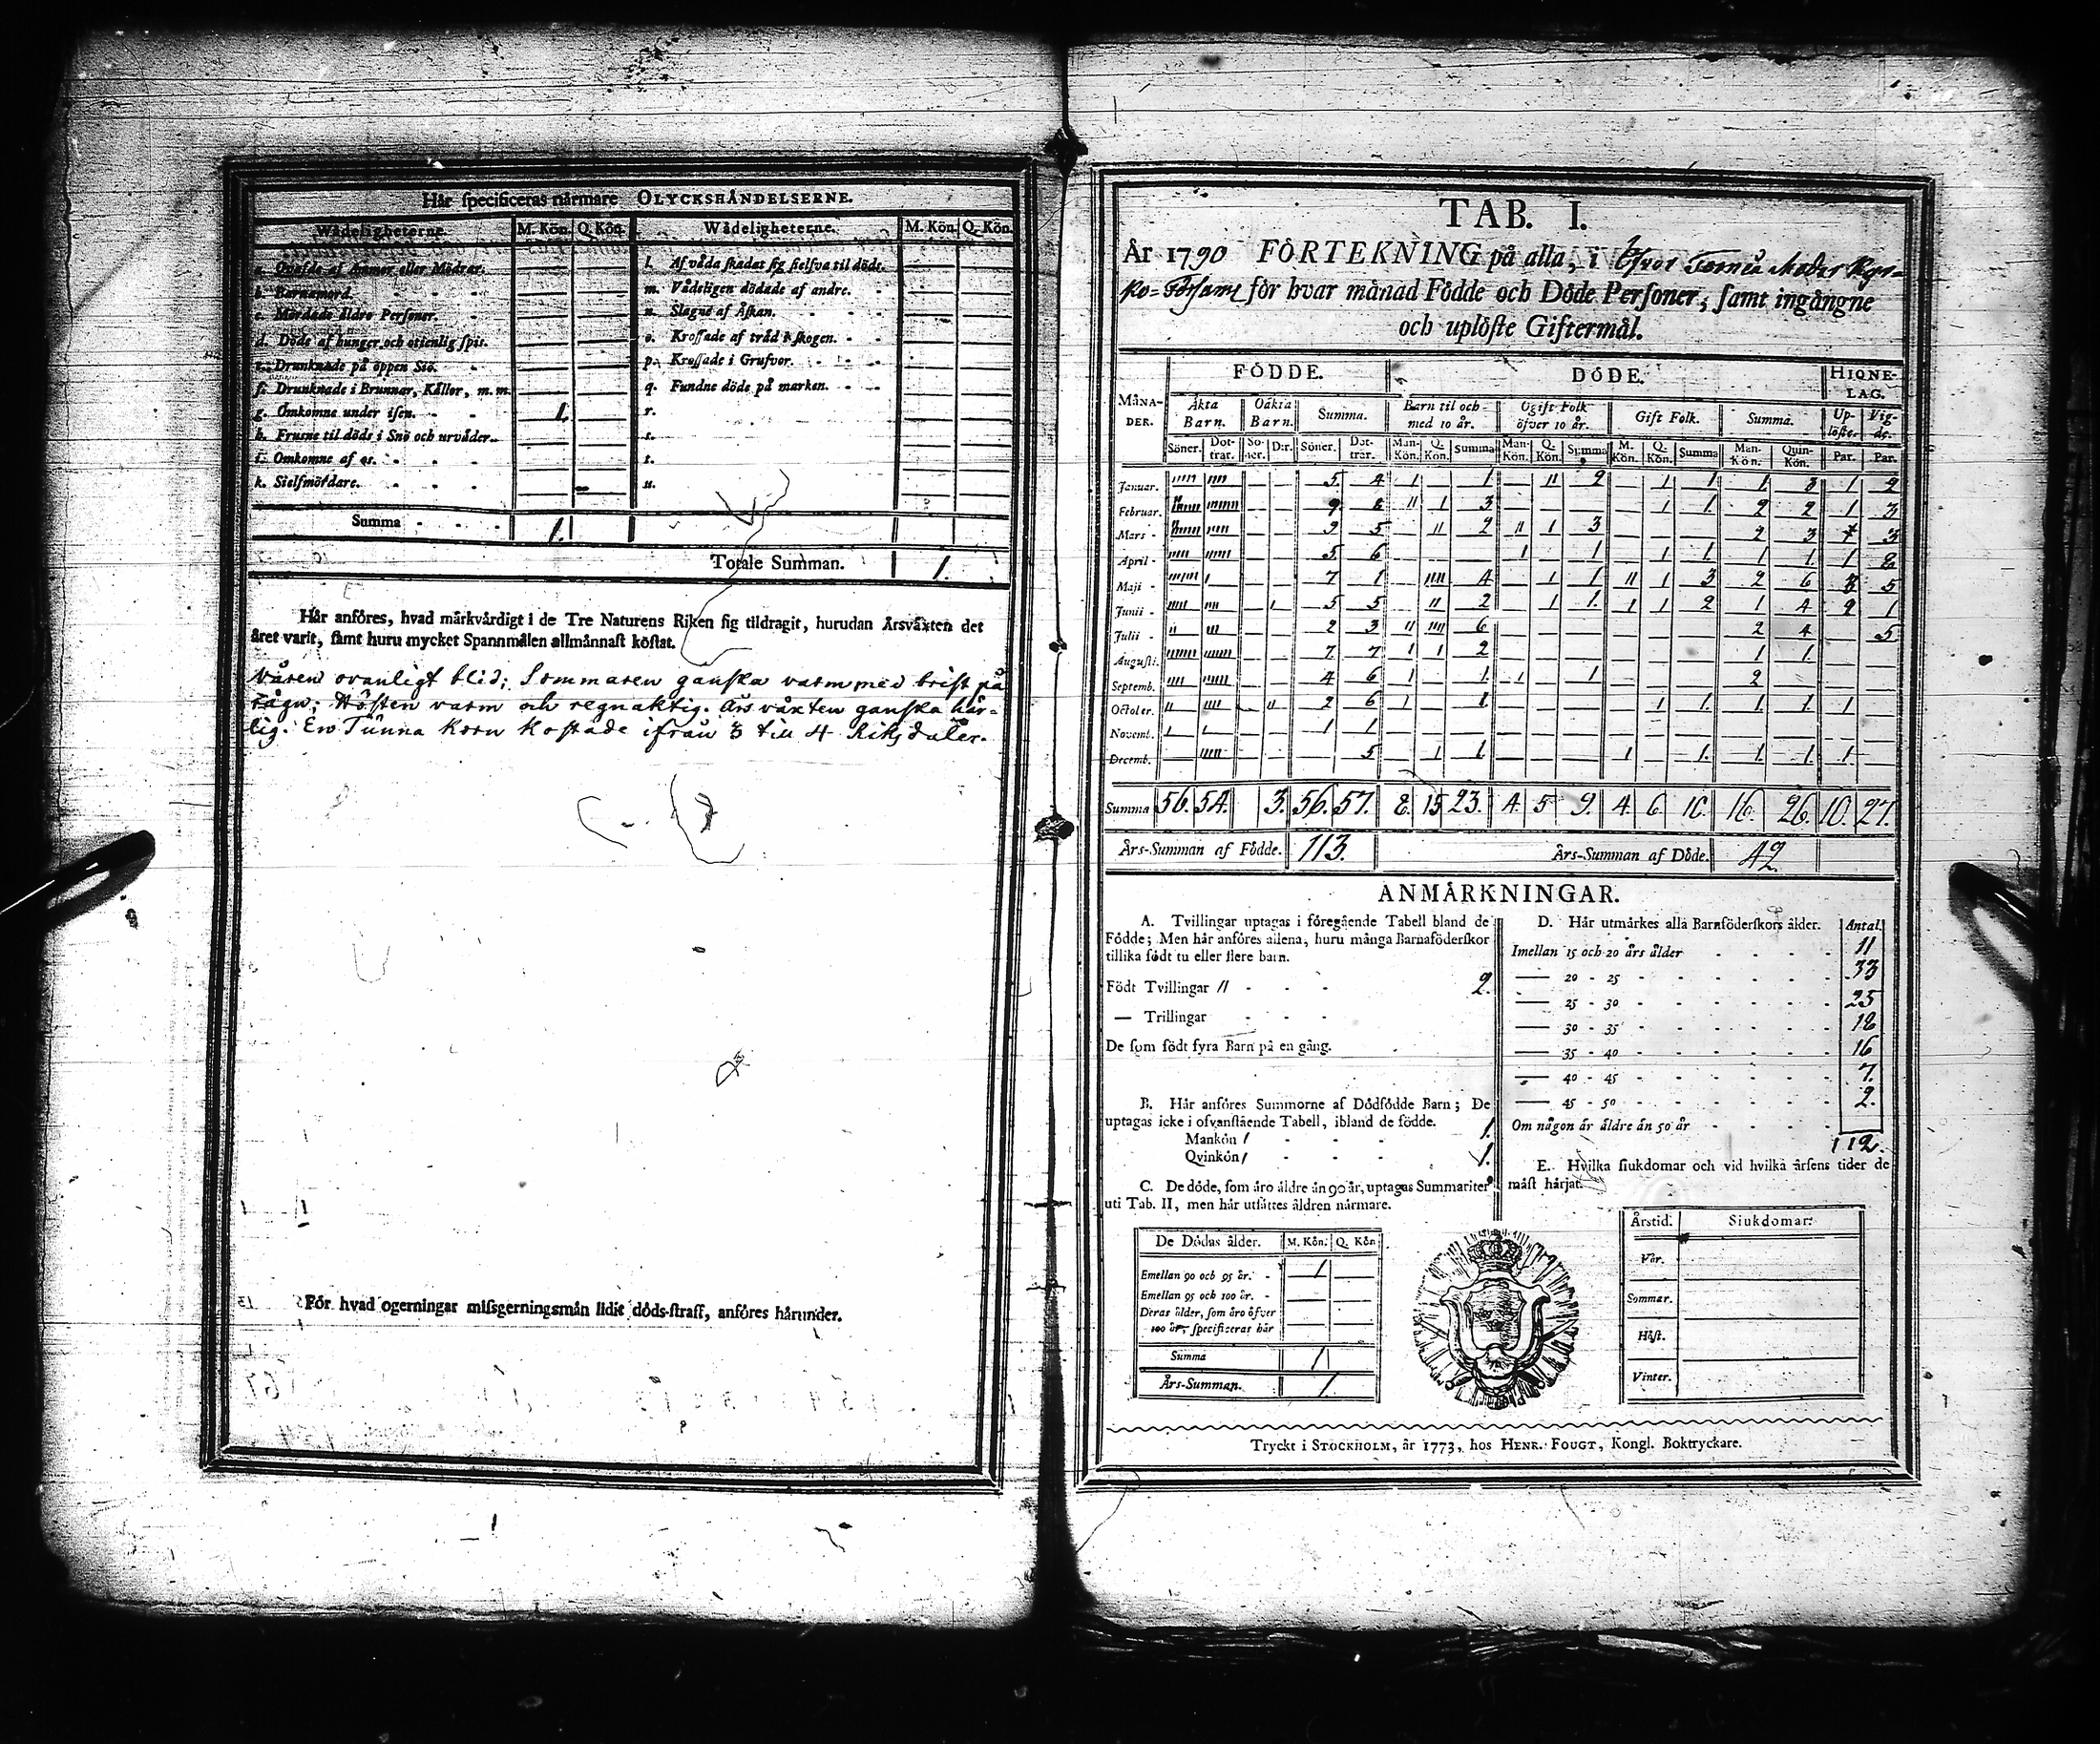 Här specificeras närmare OLYCKSHÄNDELSERNE.
Wådeligheterne. M. Kön. Q. Kön. Wådeligheterne. M. Kön. Q. Kön.
a. Qvafde af Ammor eller Mödrar. l. Af våda skadat sig sielfva til döds.
b. Barnamord. m. Vådeligen dödade af andre.
c. Mördade äldre Personer. n. Slagne af Åskan.
d. Döde af hunger och otienlig spis. o. Krossade af träd i skogen.
e. Drunknade på öppen Siö. p. Krossade i Grufvor.
f. Drunknade i Brunnar, Källor, m. m. q. Fundne döde på marken.
g. Omkomne under isen. 1. r.
h. Frusne til döds i Snö och urväder. s.
i. Omkomne af os. t.
k. Sielfmördare. u.
Summa 1.
Totale Summan. 1.
Här anföres, hvad märkvärdigt i de Tre Naturens Riken sig tildragit, hurudan Årsväxten det
året varit, samt huru mycket Spannmålen allmännast kostat.
Våren ovanligt blid; Sommaren ganska varm med brist på
rägn; Hösten varm och regnaktig. Års växten ganska här-
lig. En Tunna Korn kostade ifrån 3 till 4 Riksdaler.
För hvad ogerningar missgerningsmän lidit döds-straff, anföres härunder.
TAB. I.
År 1790 FÖRTEKNING på alla, i Öfver Torneå Moder Kyr-
ko-Församl för hvar månad Födde och Döde Personer, samt ingångne
och uplöste Giftermål.
FÖDDE. DÖDE. HIONE-LAG.
MÅNA-DER. Äkta Barn. Oäkta Barn. Summa. Barn til och med 10 år. Ogift Folk öfver 10 år. Gift Folk. Summa. Up-löste. Vig-de.
Söner. Dot-trar. Sö-ner. D:r. Söner. Dot-trar. Man-Kön. Q. Kön. Summa Man-Kön. Q. Kön. Summa M. Kön. Q. Kön. Summa Man-Kön. Quin-Kön. Par. Par.
Januar. 5 4 1 1 11 2 1 1 1 3 1 2
Februar. 9 8 11 1 3 1 1 2 2 1 3
Mars 9 5 11 2 11 1 3 2 3 3
April 5 6 1 1 1 1 1 1. 1 8
Maji 7 1 1111 4 1 1 11 1 3 2 6 3 5
Junii 5 5 11 2 1 1. 1 1 2 1 4 2 1
Julii 2 3 11 1111 6 2 4 5
Augusti. 7 7 1 1 2 1 1.
Septemb. 4 6 1 1. 1 1 2
Octoler. 2 6 1 1 1 1. 1. 1. 1
Novemb. 1 1
Decemb. 5 1 1. 1 1. 1. 1. 1
Summa 56. 54. 3. 56. 57. 8. 15 23. 4. 5 9. 4. 6. 10. 16. 26. 10. 27.
Års-Summan af Födde. 113. Års-Summan af Döde. 42.
ANMÄRKNINGAR.
A. Tvillingar uptagas i föregående Tabell bland de
Födde; Men här anföres allena, huru många Barnaföderskor
tillika födt tu eller flere barn.
Födt Tvillingar 11 2.
— Trillingar
De som födt fyra Barn på en gång.
B. Här anföres Summorne af Dödfödde Barn; De
uptagas icke i ofvanstående Tabell, ibland de födde.
Mankön 1 1.
Qvinkön 1 1.
C. De döde, som äro äldre än 90 år, uptagas Summariter
uti Tab. II, men här utsättes åldren närmare.
De Dödas ålder. M. Kön. Q. Kön
Emellan 90 och 95 år. 1
Emellan 95 och 100 år.
Deras ålder, som äro öfver
100 år, specificeras här
Summa 1
Års-Summan. 1
D. Här utmärkes alla Barnföderskors ålder. Antal.
Imellan 15 och 20 års ålder 11
— 20 - 25 33
— 25 - 30 25
— 30 - 35 18
— 35 - 40 16
— 40 - 45 7.
— 45 - 50 2.
Om någon är äldre än 50 år
112.
E. Hvilka siukdomar och vid hvilka årsens tider de
mäst härjat.
Årstid. Siukdomar.
Vår.
Sommar.
Höst.
Vinter.
Tryckt i STOCKHOLM, år 1773, hos HENR. FOUGT, Kongl. Boktryckare.